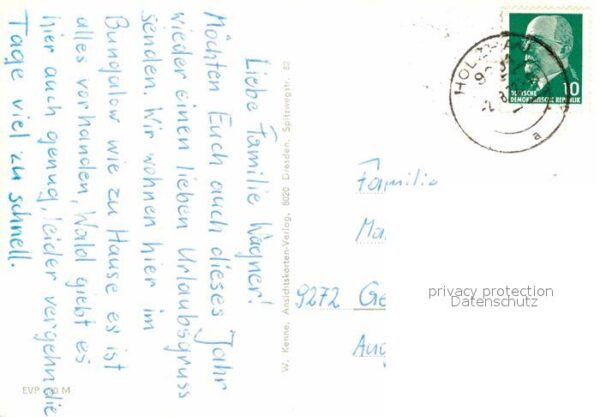 Liebe Familie Wagner!
Möchten Euch auch dieses Jahr
wieder einen lieben Urlaubsgruss
senden. Wir wohnen hier im
Bungalow wie zu Hause es ist
alles vorhanden, Wald giebt es
hier auch genug, leider vergehn die
Tage viel zu schnell.
EVP M
W. Kenne, Ansichtskarten-Verlag, 8020 Dresden, Spitzwegstr. 82
DEUTSCHE
DEMOKRATISCHE REPUBLIK
10
a
Familie
9272
privacy protection
Datenschutz